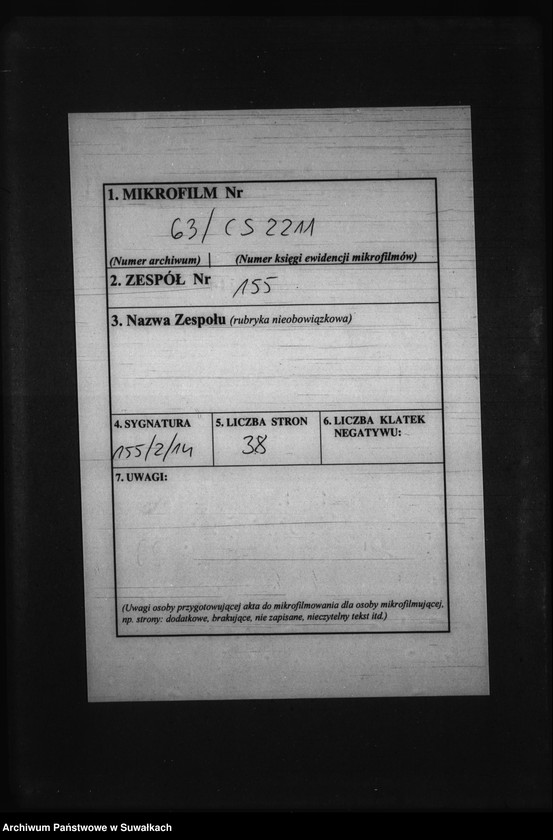 1. MIKROFILM Nr
63/CS 2211
(Numer archiwum) (Numer księgi ewidencji mikrofilmów)
2. ZESPÓŁ Nr 155
3. Nazwa Zespołu (rubryka nieobowiązkowa)
4. SYGNATURA
155/2/14
5. LICZBA STRON
38
6. LICZBA KLATEK
NEGATYWU:
7. UWAGI:
(Uwagi osoby przygotowującej akta do mikrofilmowania dla osoby mikrofilmującej,
np. strony: dodatkowe, brakujące, nie zapisane, nieczytelny tekst itd.)
Archiwum Państwowe w Suwałkach